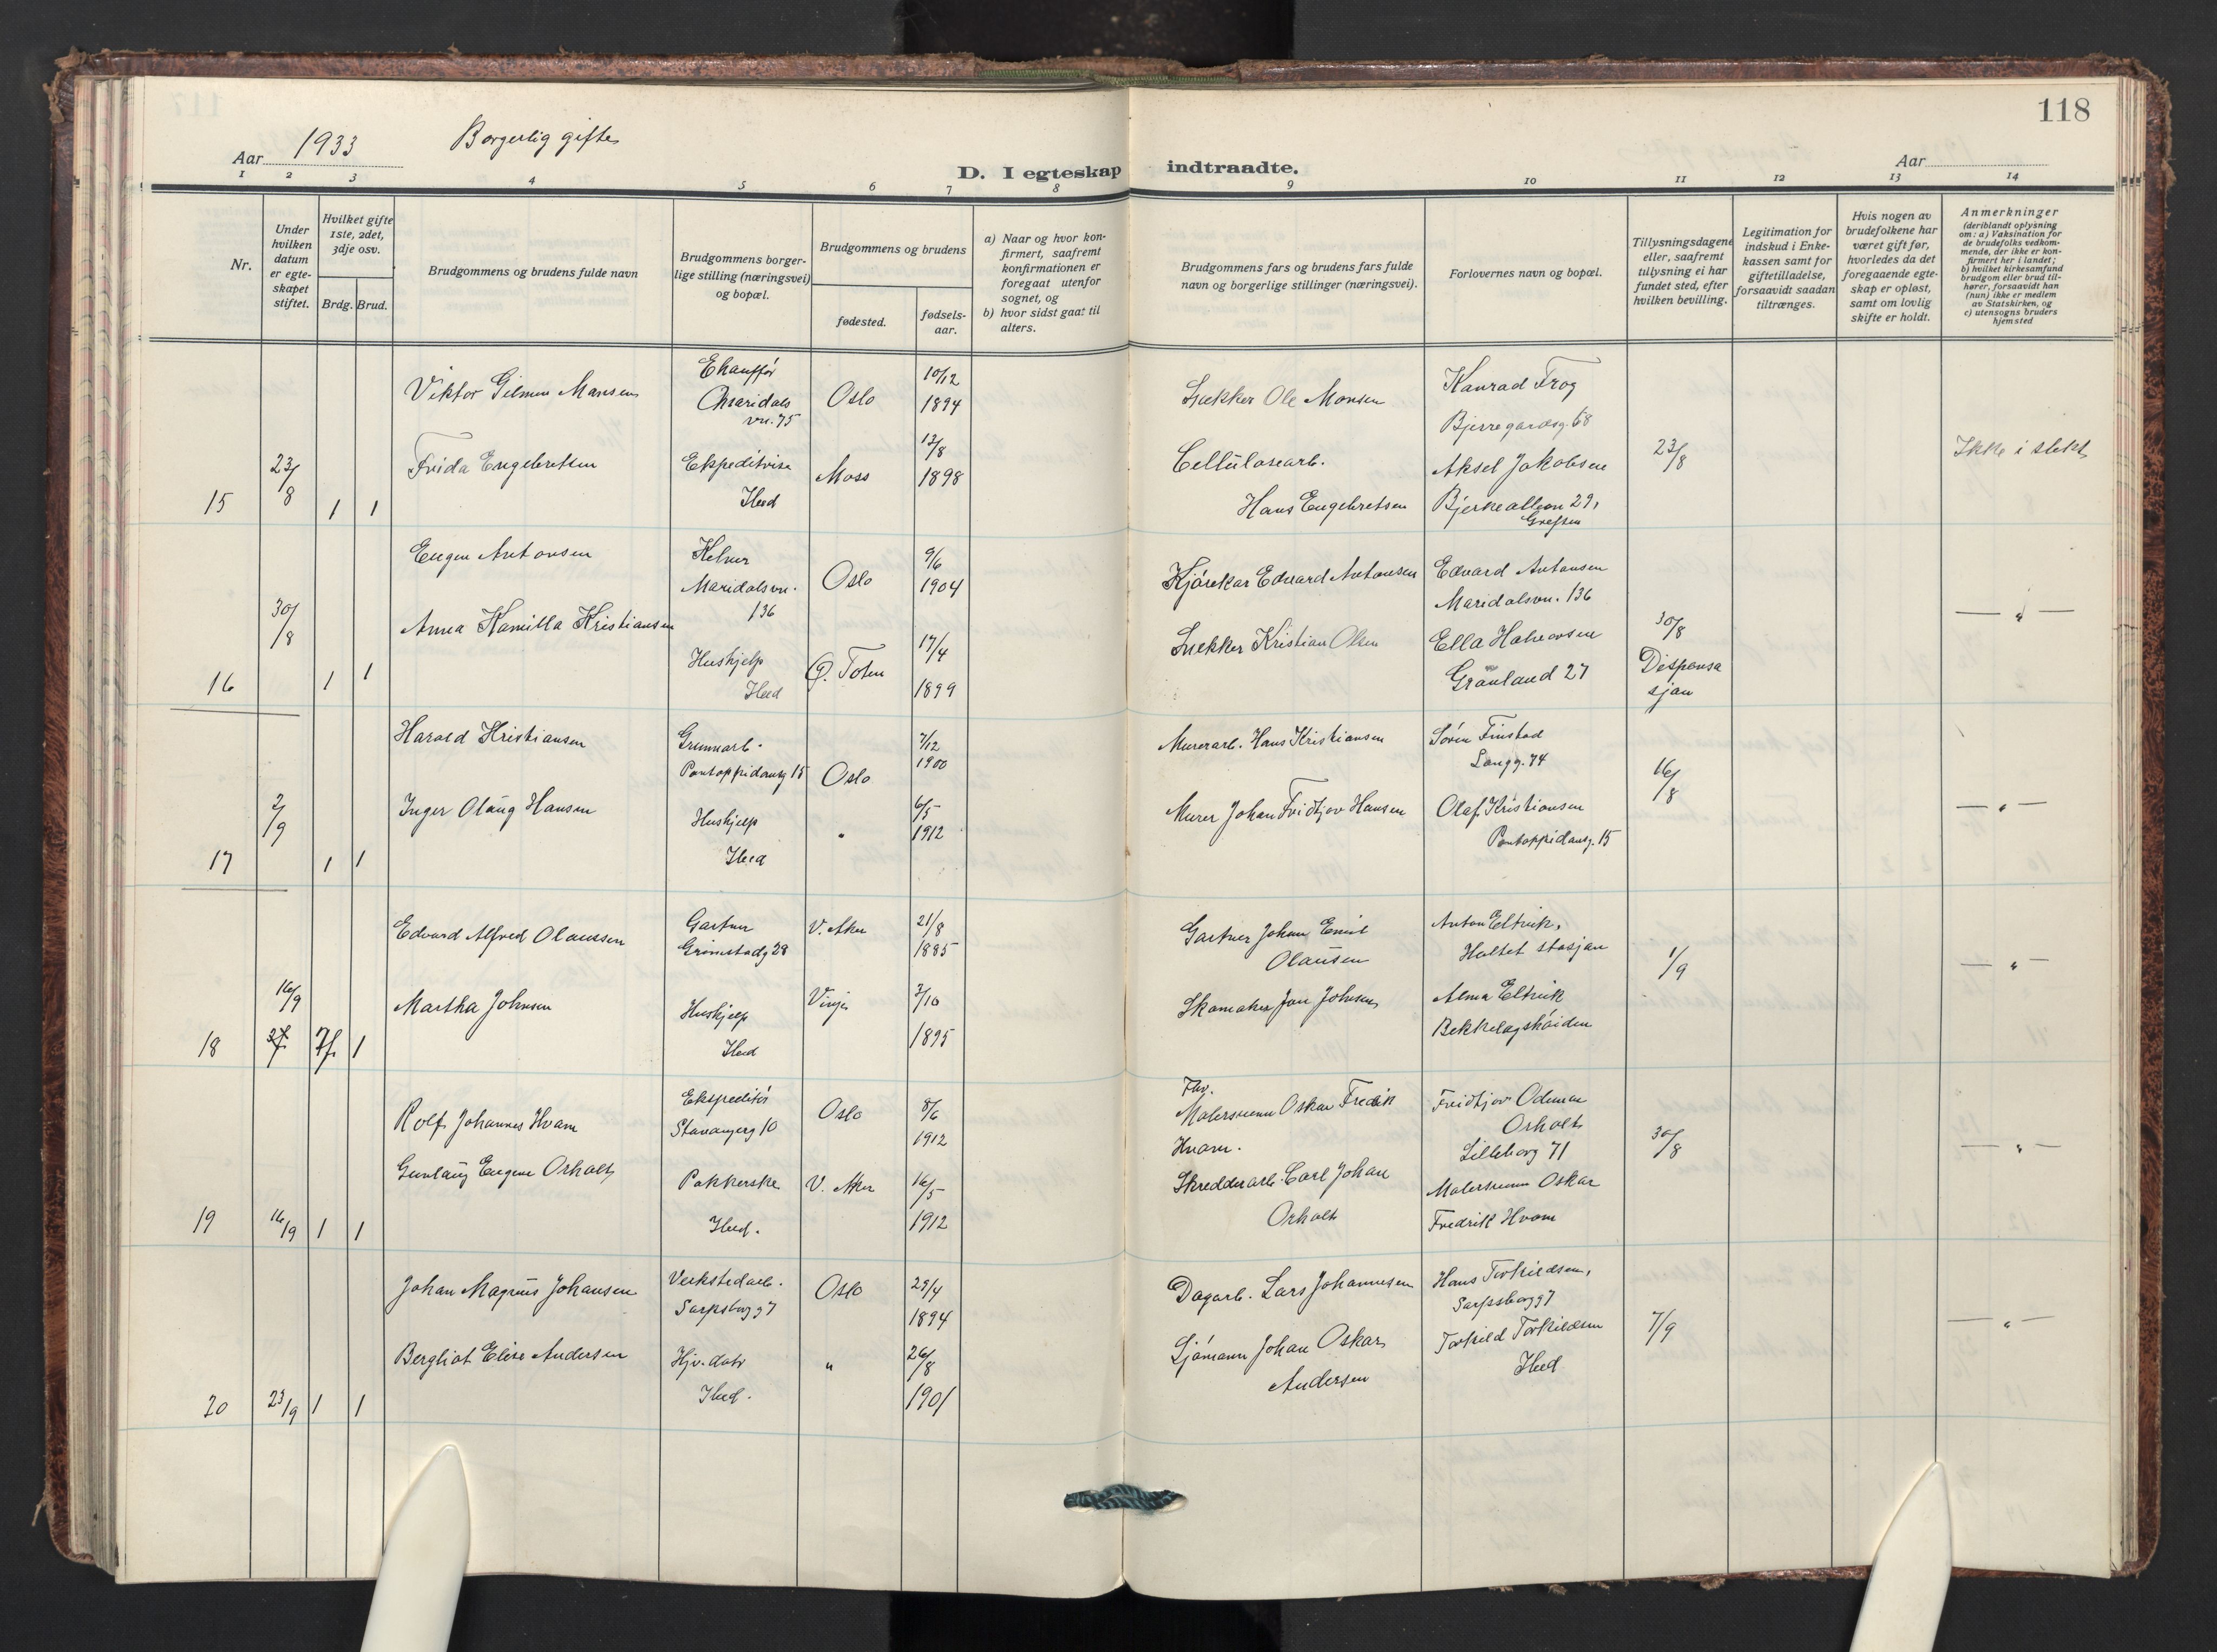 118
Aar 1933 Borgerlig gifte
D. I egteskap indtraadte.
Aar
1 2 3 4 5 6 7 8 9 10 11 12 13 14
Nr.
Under hvilken datum er egte-skapet stiftet.
Hvilket gifte 1ste, 2det, 3dje osv.
Brdg. Brud.
Brudgommens og brudens fulde navn
Brudgommens borger-
lige stilling (næringsvei)
og bopæl.
Brudgommens og brudens
fødested.
fødsels-
aar.
a) Naar og hvor kon-
firmert, saafremt
konfirmationen er
foregaat utenfor
sognet, og
b) hvor sidst gaat til
alters.
Brudgommens fars og brudens fars fulde
navn og borgerlige stillinger (næringsvei).
Forlovernes navn og bopæl.
Tillysningsdagene
eller, saafremt
tillysning ei har
fundet sted, efter
hvilken bevilling.
Legitimation for
indskud i Enke-
kassen samt for
giftetilladelse,
forsaavidt saadan
tiltrænges.
Hvis nogen av
brudefolkene har
været gift før,
hvorledes da det
foregaaende egte-
skap er opløst,
samt om lovlig
skifte er holdt.
Anmerkninger
(deriblandt oplysning
om: a) Vaksination for
de brudefolks vedkom-
mende, der ikke er kon-
firmert her i landet;
b) hvilket kirkesamfund
brudgom eller brud til-
hører, forsaavidt han
(hun) ikke er medlem
av Statskirken, og
c) utensogns bruders
hjemsted
15 23/8 1 1
Viktor Hansen
Chauffør
Maridals
vn. 75
Oslo
10/12
1894
Snekker Ole Monsen
Konrad Frog
Bjerregardsg. 68
Frida Engebretsen
Ekspeditrise
Ibid
Moss
13/8
1898
Cellulosearb.
Hans Engebretsen
Aksel Jakobsen
Bjerkealleen 29,
Grefsen
23/8
Ikke i slekt
16 30/8 1 1
Eugen Antonsen
Kelner
Maridalsvn.
136
Oslo
9/6
1904
Kjørekar Edvard Antonsen
Edvard Antonsen
Maridalsvn. 136
Anna Kamilla Kristiansen
Hushjelp
Ibid
Ø. Toten
17/4
1899
Snekker Kristian Olsen
Ella Halvorsen
Grønland 27
30/8
Dispensa
sjon
— " —
17 2/9 1 1
Harald Kristiansen
Grunnarb.
Pontoppidansg 15
Oslo
7/12
1900
Murerarb. Hans Kristiansen
Søren Finstad
Langg. 74
Inger Olaug Hansen
Hushjelp
Ibid
"
6/5
1912
Murer Johan Fridtjov Hansen
Olaf Kristiansen
Pontoppidansg. 15
16/8
— " —
18 16/9 1
Edvard Alfred Olaussen
Gartner
Grimstadg 28
V. Aker
21/8
1885
Gartner Johan Emil
Olausen
Anton Eltvik,
Holtet stasjon
Martha Johnsen
Hushjelp
Ibid
Vinje
3/10
1895
Skomaker Jon Johnsen
Alma Eltvik
Bekkelagshøiden
1/9
— " —
19 16/9 1 1
Rolf Johannes Hvam
Ekspeditør
Stavangerg 10
Oslo
8/6
1912
Fhv.
Malersvenn Oskar Fredrik
Hvam.
Fridtjov Odmar
Orholt
Lilleborg 71
Gunlaug Eugenie Orholt
Pakkerske
Ibid.
V. Aker
16/5
1912
Skredderarb. Carl Johan
Orholt
Malersvenn Oskar
Fredrik Hvam
30/8
— " —
20 23/9 1 1
Johan Magnus Johansen
Verkstedarb.
Sarpsborgg 7
Oslo
29/4
1894
Dagarb. Lars Johannesen
Hans Torkildsen,
Sarpsborgg 7
Bergliot Elise Andersen
Hjv. datr
Ibid.
"
26/8
1901
Sjømann Johan Oskar
Andersen
Torkild Torkildsen
Ibid
7/9
— " —